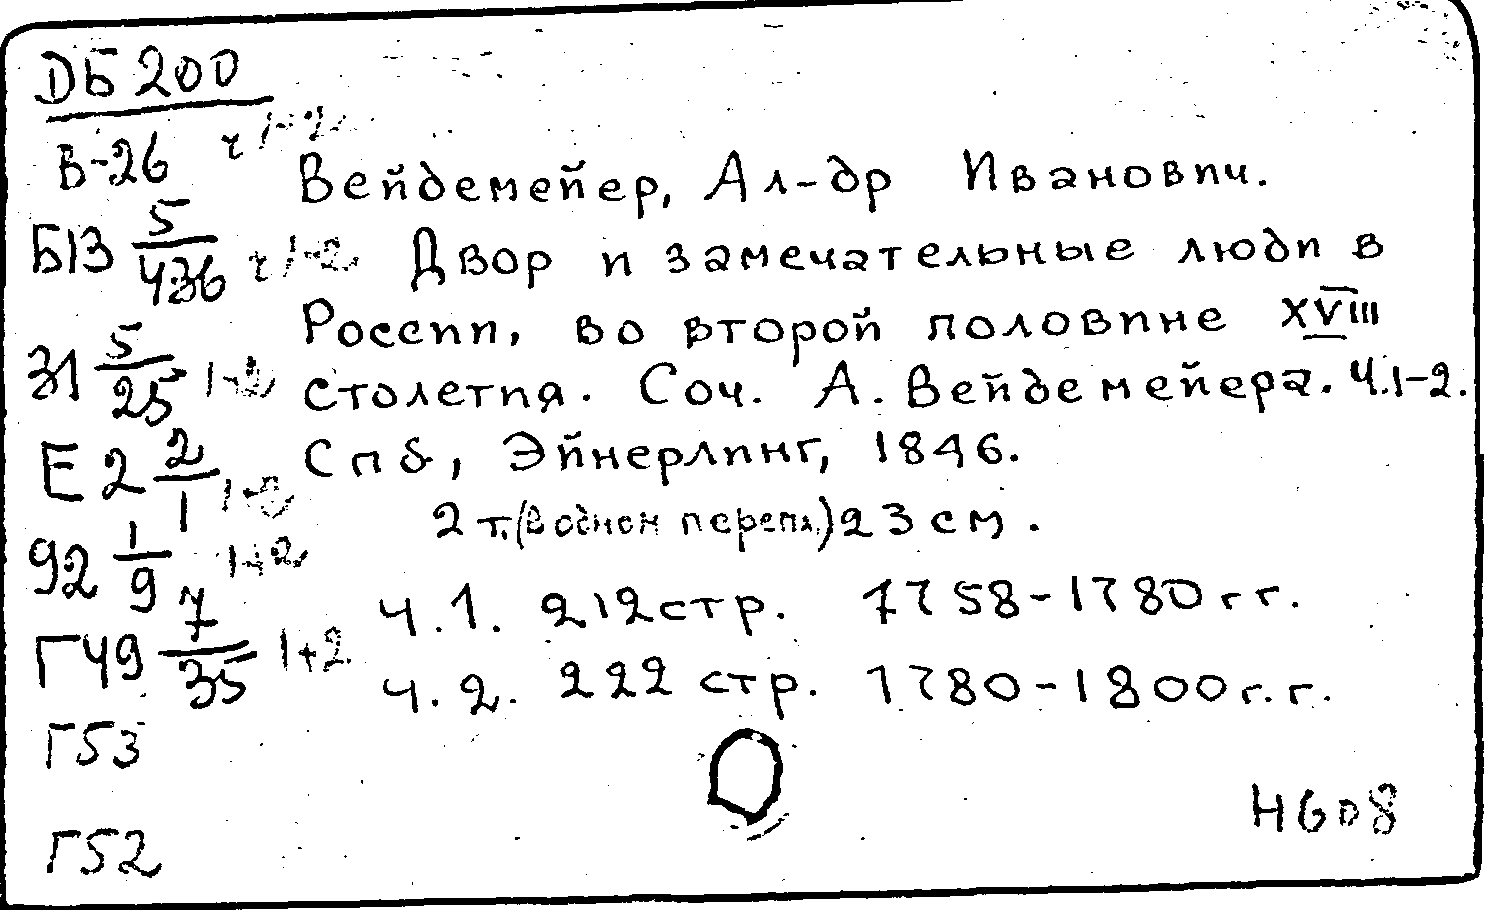 DБ 200
В-26 ч 1-2
Вейдемейер, Ал-др Иванович.
Б13 5/436 ч 1-2
Двор и замечательные люди в
России, во второй половине XVIII
31 5/25 1-2
столетия. Соч. А. Вейдемейера. Ч.1-2.
Е 2 2/1 1-2
Спб, Эйнерлинг, 1846.
2 т. (в одном перепл.) 23 см.
92 1/9 1+2
Ч.1. 212 стр. 1758-1780 гг.
Г49 7/35 1+2
Ч.2. 222 стр. 1780-1800 г.г.
Г53
Г52